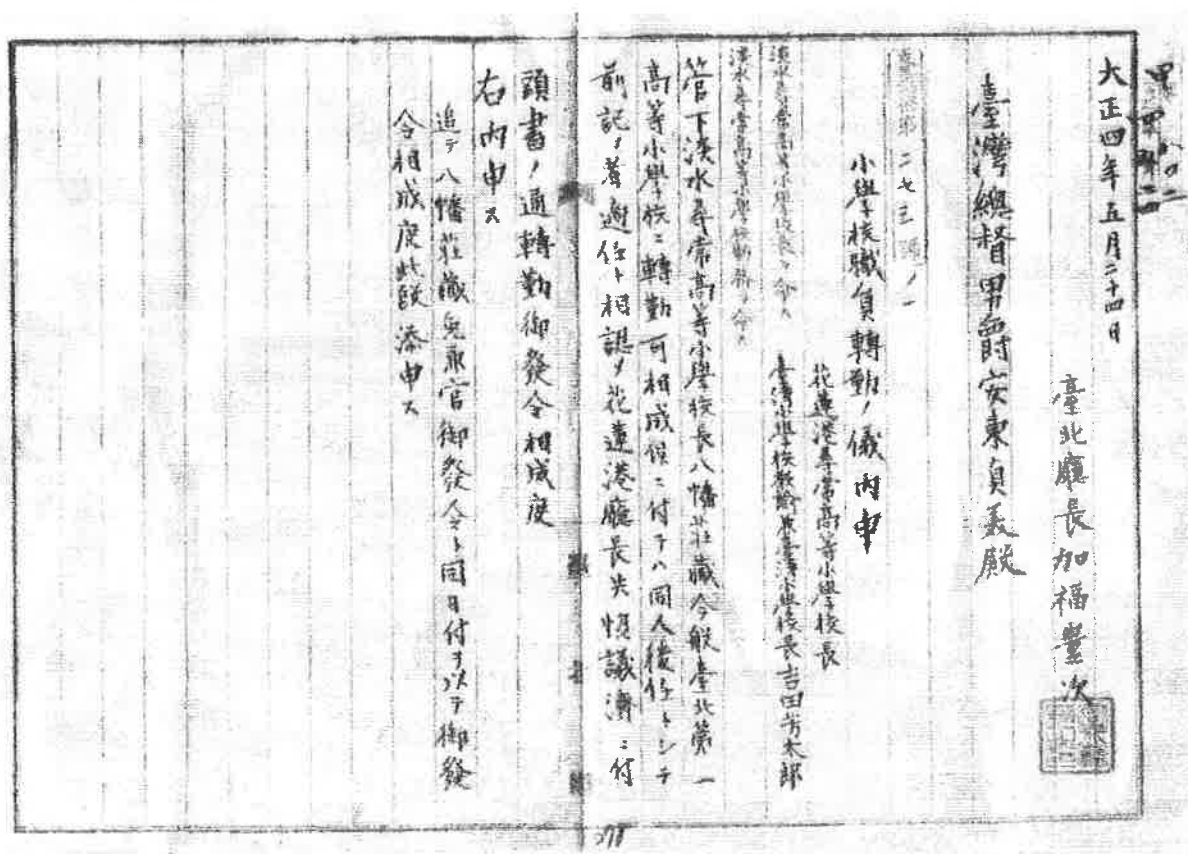 大正四年五月二十四日
臺北廳長加福豊次
臺灣總督男爵安東貞美殿
第二七三號ノ一
小學校職員轉勤ノ儀内申
花蓮港尋常高等小學校長
臺灣小學校教諭兼臺灣小學校長吉田芳太郎
淡水尋常高等小學校長ヲ命ス
淡水尋常高等小學校勤務ヲ命ス
管下淡水尋常高等小學校長八幡荘藏今般臺北第一
高等小學校ニ轉勤可相成候ニ付テハ同人後任トシテ
前記ノ者適任ト相認メ花蓮港廳長共協議濟ニ付
頭書ノ通轉勤御發令相成度
右内申ス
追テ八幡荘藏免兼官御發令ト同日付ヲ以テ御發
令相成度此段添申ス